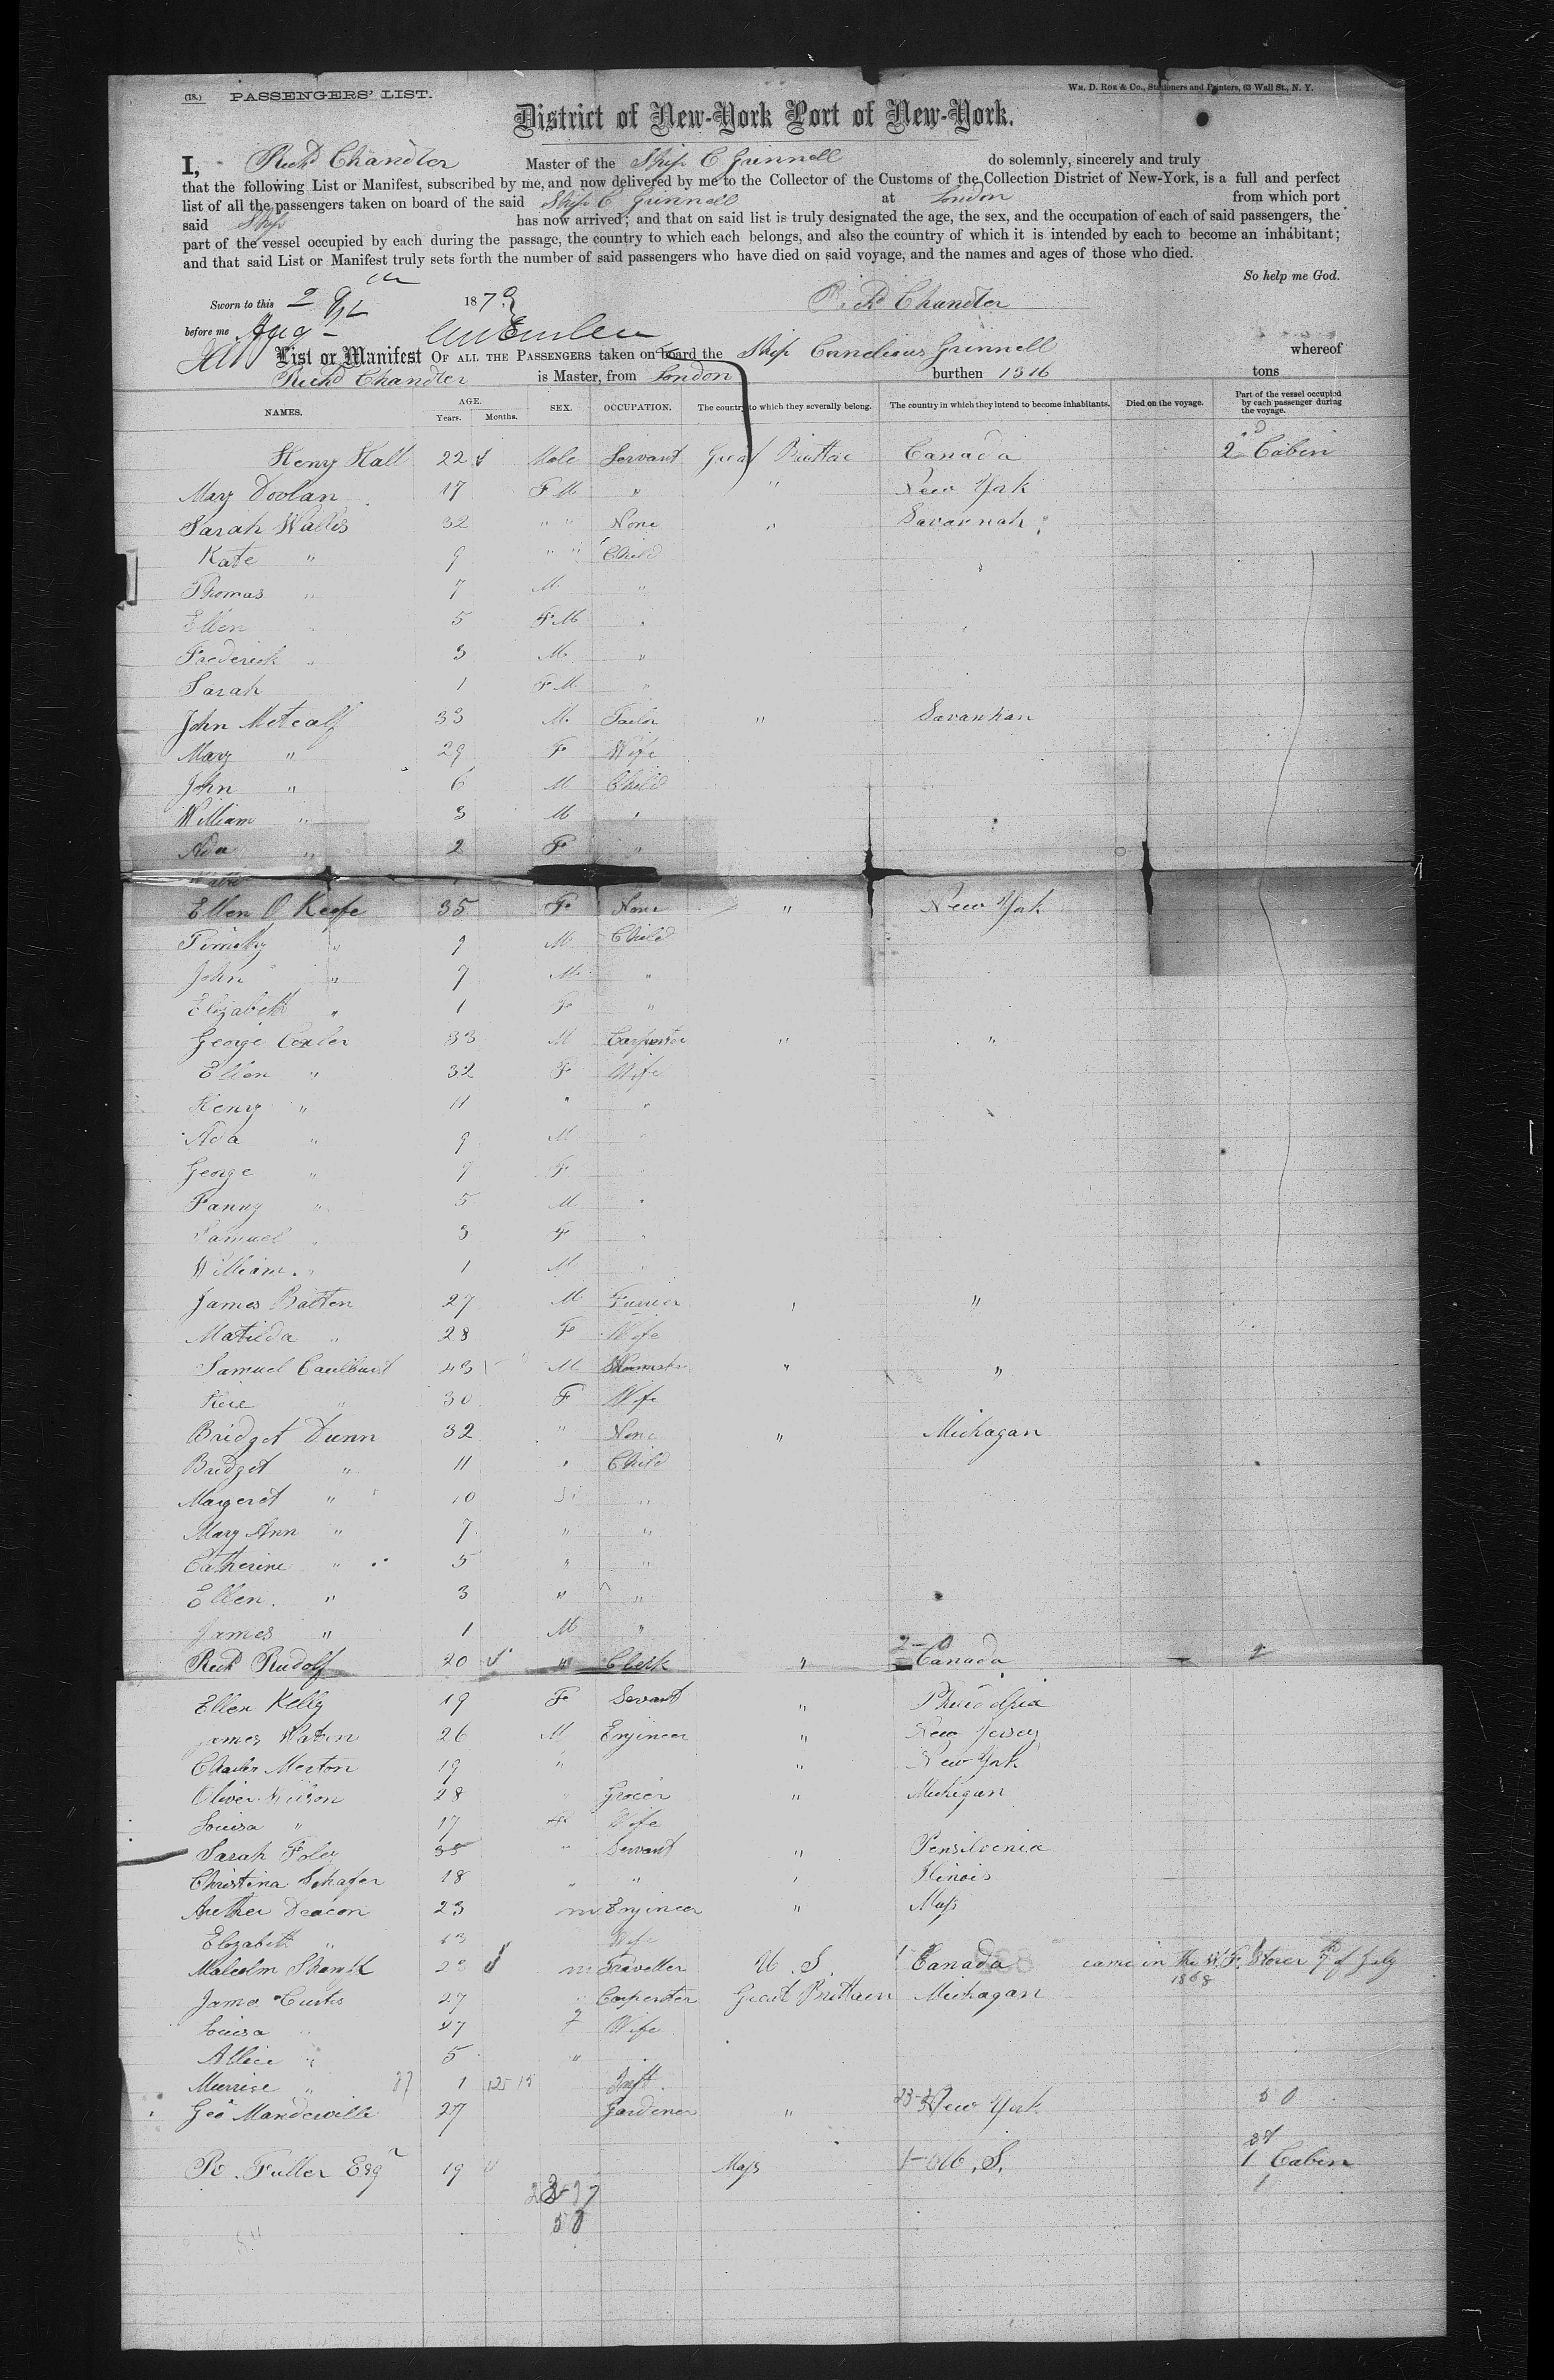 (18.) PASSENGERS' LIST. Wm. D. Roe & Co., Stationers and Printers, 63 Wall St., N. Y.
District of New-York Port of New-York.
I, Richd Chandler Master of the Ship C Grinnell do solemnly, sincerely and truly
that the following List or Manifest, subscribed by me, and now delivered by me to the Collector of the Customs of the Collection District of New-York, is a full and perfect
list of all the passengers taken on board of the said Ship C Grinnell at London from which port
said Ship has now arrived; and that on said list is truly designated the age, the sex, and the occupation of each of said passengers, the
part of the vessel occupied by each during the passage, the country to which each belongs, and also the country of which it is intended by each to become an inhabitant;
and that said List or Manifest truly sets forth the number of said passengers who have died on said voyage, and the names and ages of those who died.
So help me God.
Sworn to this 2 1879 Richd Chandler
before me Aug
List or Manifest OF ALL THE PASSENGERS taken on board the Ship Cornelious Grinnell whereof
Richd Chandler is Master, from London burthen 1316 tons
NAMES. AGE. Years. Months. SEX. OCCUPATION. The country to which they severally belong. The country in which they intend to become inhabitants. Died on the voyage. Part of the vessel occupied by each passenger during the voyage.
Heny Hall 22 Male Servant Great Brittac Canada 2d Cabin
Mary Doolan 17 F M " " New York
Sarah Wallis 32 " " None " Savannah
Kate " 9 " " Child
Thomas " 7 M "
Ellen 5 F M
Frederick " 3 M "
Sarah 1 F M "
John Metcalf 33 M. Tailor " Savanhan
Mary " 29 F Wife
John " 6 M Child
William " 3 M "
Ada " 2 F "
Ellen O Keefe 35 F None " New York
Timothy " 9 M Child
John " 7 M "
Elizabeth " 1 F "
George Coxler 33 M Carpenter " "
Ellen " 32 F Wife
Heny " 11 " "
Ada " 9 M
George " 7 F
Fanny " 5 M "
Samuel 3 F
William " 1 M
James Batten 27 M Furrier "
Matilda " 28 F Wife
Samuel 43 M " "
" 30 F Wife
Bridget Dunn 32 " None " Michagan
Bridget " 11 " Child
Margeret " 10 "
Mary Ann " 7 " "
Catherine " 5 " "
Ellen. " 3 " "
James " 1 M "
2-0
Richd Rudolf 20 " Clerk " Canada 2
Ellen Kelly 19 F Servant "
James 26 M Enjineer " New Jersey
Charles Merton 19 " " New-York
Oliver Wilson 28 Grocer " Michigan
Louisa " 17 F Wife
Sarah Foley 35 " Servant " Pensilvenia
Christina Schafer 18 " " Ilinois
Arther Deacon 23 m Enjineer " Mass
Elizabeth " Wife
Malcolm 23 m Traveller U. S. 1 Canada came in the W. F. Storer 7th of July
1868
James Curtis 27 Carpenter Great Brittain Michagan
Louisa 27 F Wife
Allice " 5 "
" 1 Inft.
Geo Mandeville 27 Gardener " 23-27 New York 50
R. Fuller Esqr 19 Mass 1- U. S. 1 Cabin
23-27
50